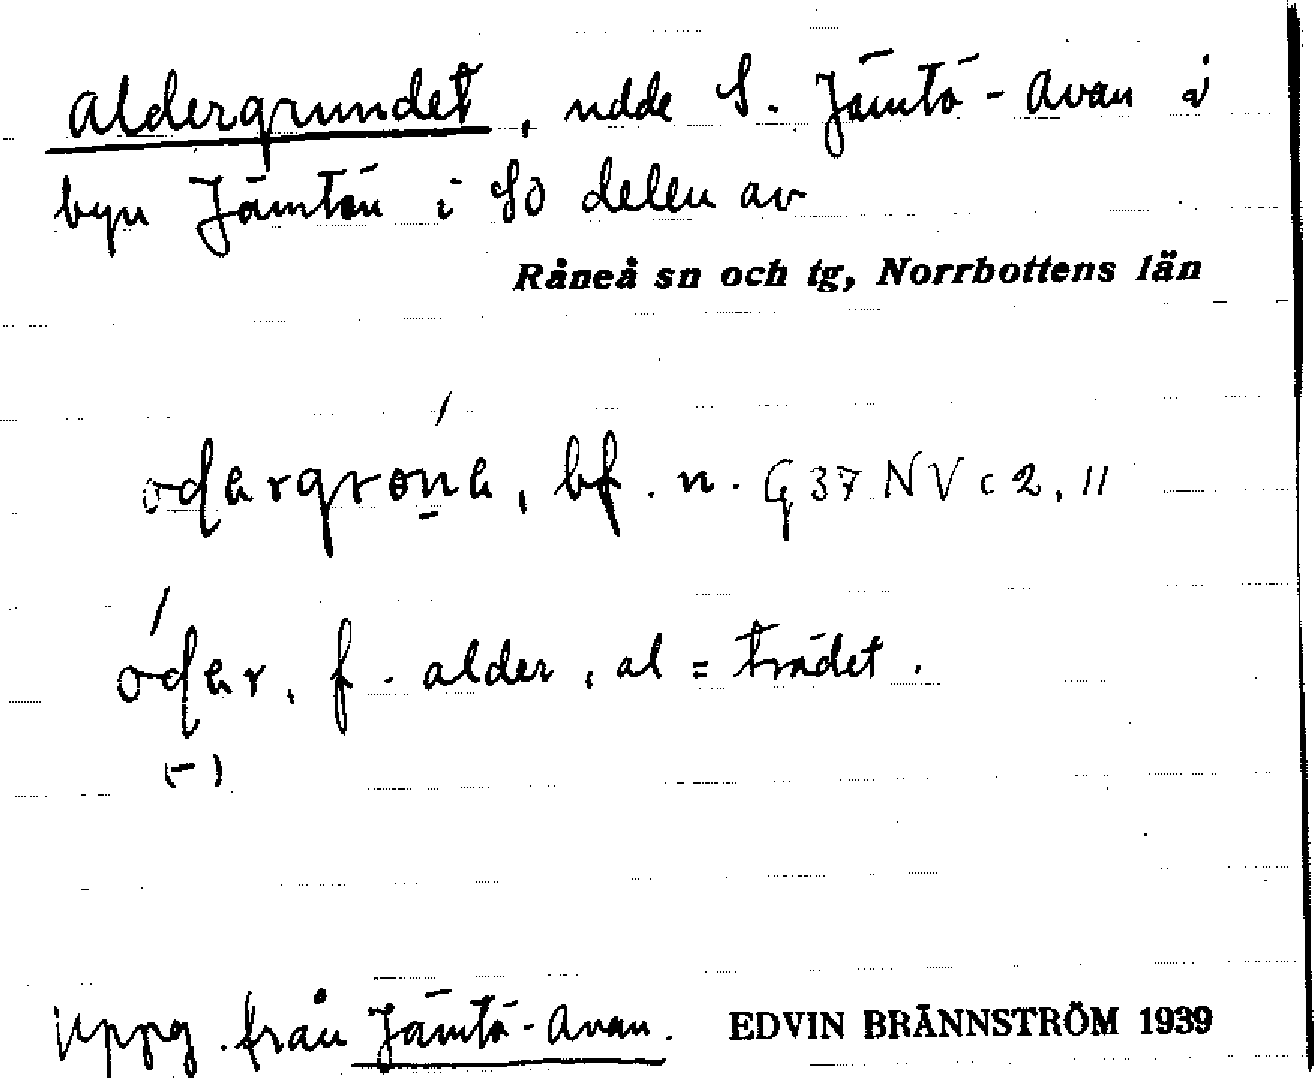 Aldergrundet, udde S. Jämtö-Avan i
byn Jämtön i SO delen av
Råneå sn och tg, Norrbottens län
bf. n. G 37 NV c 2, 11
f. alder, al = trädet.
(-)
Uppg. från Jämtö-Avan. EDVIN BRÄNNSTRÖM 1939